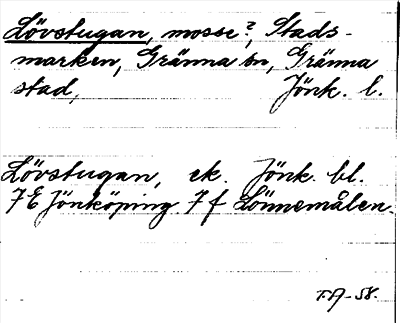 Lövstugan, mosse?, Stads-
marken, Gränna sn, Gränna
stad, Jönk. l.
Lövstugan, ek. Jönk. bl.
7E Jönköping 7f Lönnemålen.
T.A-58.